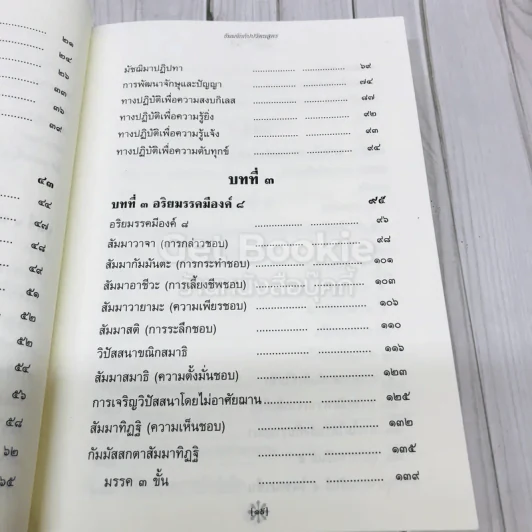 ธัมมจักกัปปวัตตนสูตร
๒๑
๒๔
๒๖
๓๓
๓๖
๓๙
๔๓
๔๔
๔๗
๔๘
๔๙
๕๑
๕๒
๕๒
๕๔
๕๖
๕๘
๖๒
๖๕
มัชฌิมาปฏิปทา ๖๙
การพัฒนาจักษุและปัญญา ๗๔
ทางปฏิบัติเพื่อความสงบกิเลส ๘๗
ทางปฏิบัติเพื่อความรู้ยิ่ง ๙๒
ทางปฏิบัติเพื่อความรู้แจ้ง ๙๓
ทางปฏิบัติเพื่อความดับทุกข์ ๙๔
บทที่ ๓
บทที่ ๓ อริยมรรคมีองค์ ๘ ๙๕
อริยมรรคมีองค์ ๘ ๙๖
สัมมาวาจา (การกล่าวชอบ) ๙๘
สัมมากัมมันตะ (การกระทำชอบ) ๑๐๑
สัมมาอาชีวะ (การเลี้ยงชีพชอบ) ๑๐๓
สัมมาวายามะ (ความเพียรชอบ) ๑๐๖
สัมมาสติ (การระลึกชอบ) ๑๑๐
วิปัสสนาขณิกสมาธิ ๑๑๖
สัมมาสมาธิ (ความตั้งมั่นชอบ) ๑๒๓
การเจริญวิปัสสนาโดยไม่อาศัยฌาน ๑๒๕
สัมมาทิฏฐิ (ความเห็นชอบ) ๑๓๒
กัมมัสสกตาสัมมาทิฏฐิ ๑๓๕
มรรค ๓ ขั้น ๑๓๙
Bookie